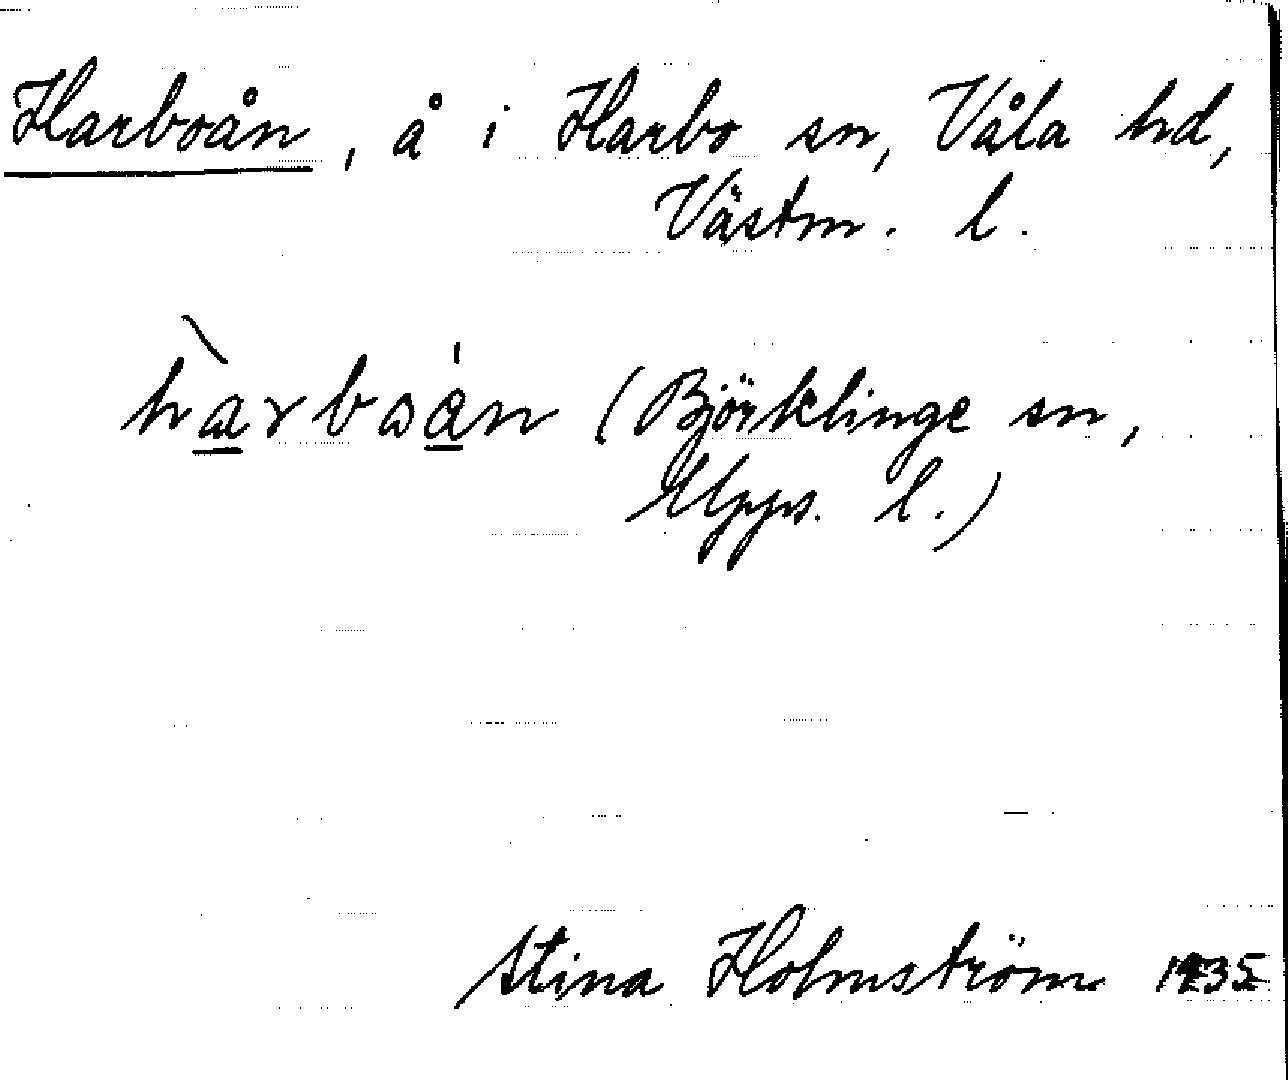 Harboån, å i Harbo sn, Våla hd,
Västm. l.
hàrboån (Björklinge sn,
Upps. l.)
Stina Holmström 1935